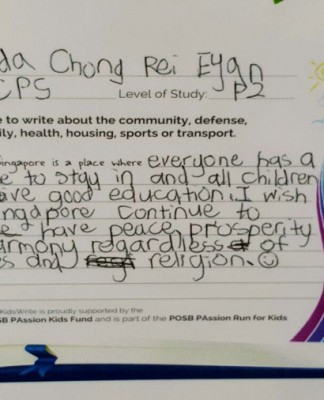 da Chong Rei Eyan
CPS Level of Study: P2
e to write about the community, defense,
ily, health, housing, sports or transport.
ingapore is a place where everyone has a
e to stay in and all children
ave good education. I wish
ngapore continue to
e have peace, prosperity
armony regardless of
s and religion.
KidsWrite is proudly supported by the
SB PAssion Kids Fund and is part of the POSB PAssion Run for Kids